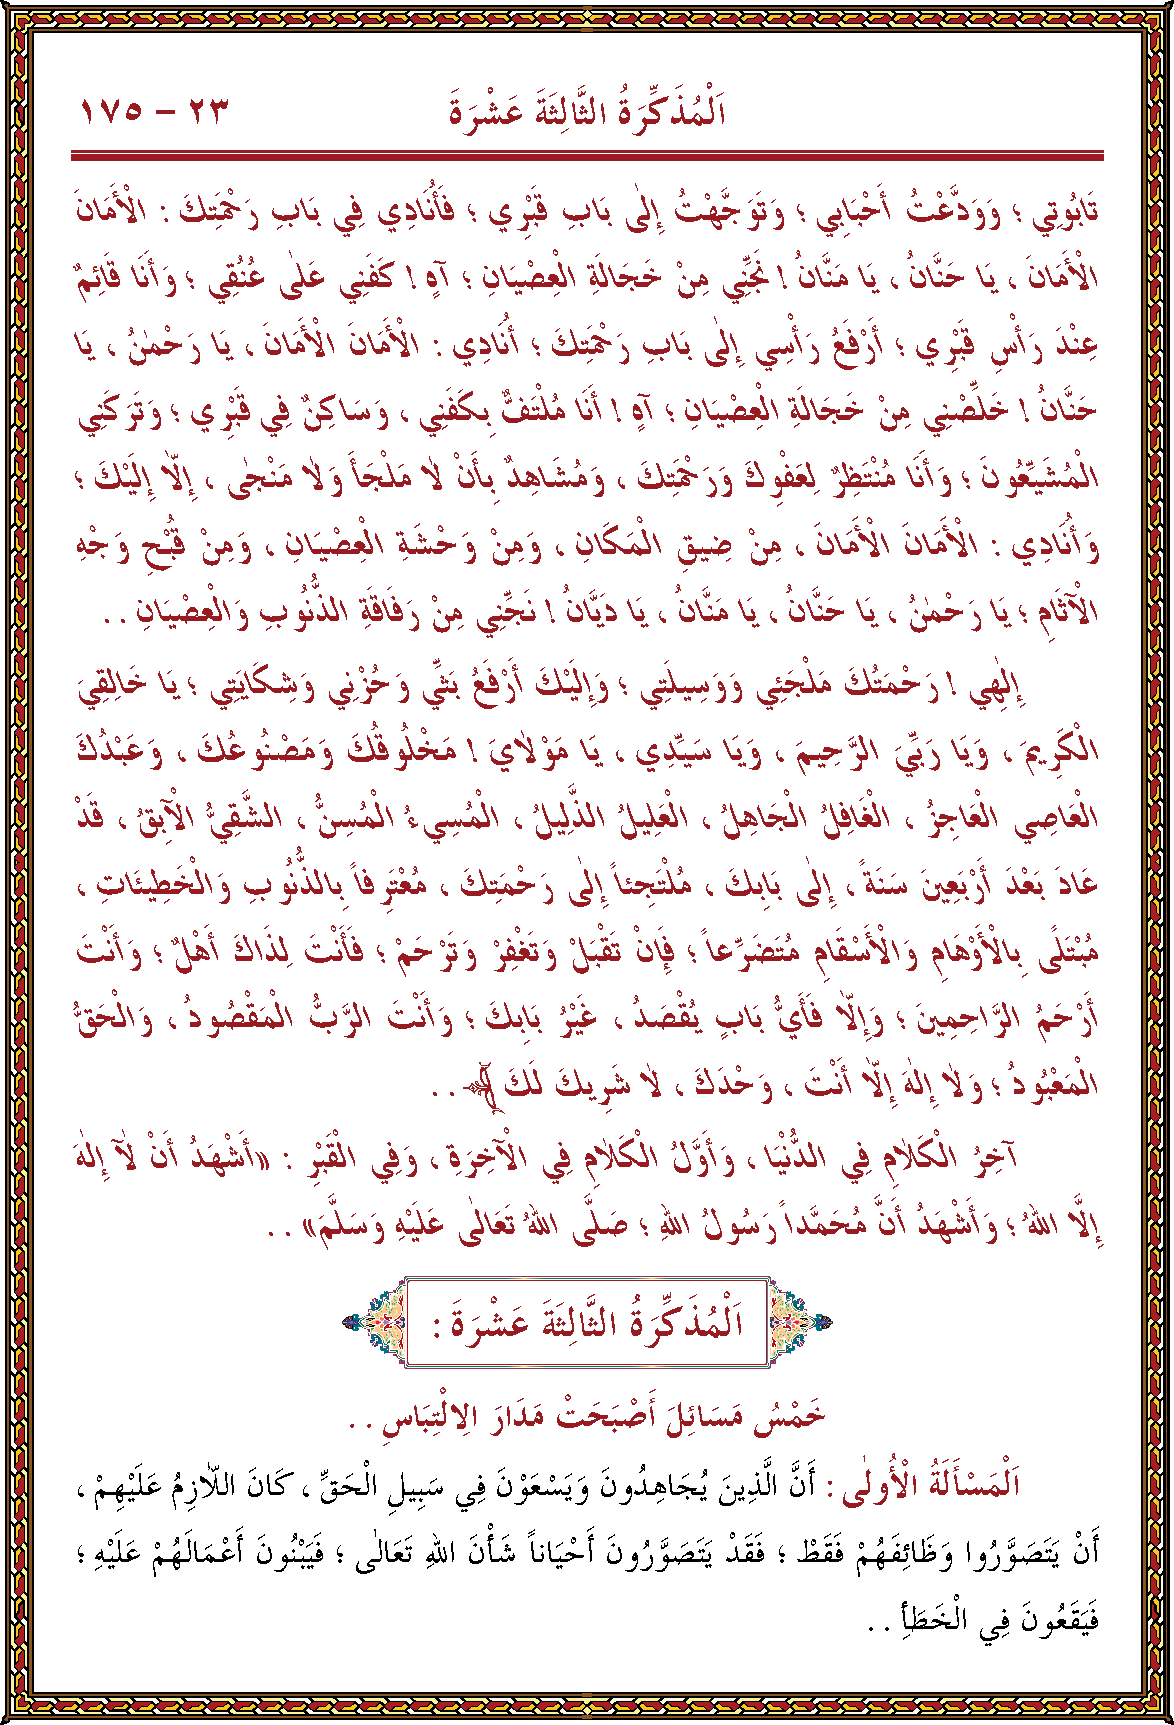 اَلْمُذَكِّرَةُ الثَّالِثَةَ عَشْرَةَ ٢٣ – ١٧٥
تَابُوتِي ؛ وَوَدَّعْتُ أَحْبَابِي ؛ وَتَوَجَّهْتُ إِلٰى بَابِ قَبْرِي ؛ فَأُنَادِي فِي بَابِ رَحْمَتِكَ : الْأَمَانَ
الْأَمَانَ ، يَا حَنَّانُ ، يَا مَنَّانُ ! نَجِّنِي مِنْ خَجَالَةِ الْعِصْيَانِ ؛ آهِ ! كَفَنِي عَلٰى عُنُقِي ؛ وَأَنَا قَائِمٌ
عِنْدَ رَأْسِ قَبْرِي ؛ أَرْفَعُ رَأْسِي إِلٰى بَابِ رَحْمَتِكَ ؛ أُنَادِي : الْأَمَانَ الْأَمَانَ ، يَا رَحْمٰنُ ، يَا
حَنَّانُ ! خَلِّصْنِي مِنْ خَجَالَةِ الْعِصْيَانِ ؛ آهٍ ! أَنَا مُلْتَفٌّ بِكَفَنِي ، وَسَاكِنٌ فِي قَبْرِي ؛ وَتَرَكَنِي
الْمُشَيِّعُونَ ؛ وَأَنَا مُنْتَظِرٌ لِعَفْوِكَ وَرَحْمَتِكَ ، وَمُشَاهِدٌ بِأَنْ لَا مَلْجَأَ وَلَا مَنْجٰى ، إِلَّا إِلَيْكَ ؛
وَأُنَادِي : الْأَمَانَ الْأَمَانَ ، مِنْ ضِيقِ الْمَكَانِ ، وَمِنْ وَحْشَةِ الْعِصْيَانِ ، وَمِنْ قُبْحِ وَجْهِ
الْآثَامِ ؛ يَا رَحْمٰنُ ، يَا حَنَّانُ ، يَا مَنَّانُ ، يَا دَيَّانُ ! نَجِّنِي مِنْ رَفَاقَةِ الذُّنُوبِ وَالْعِصْيَانِ . .
إِلٰهِي ! رَحْمَتُكَ مَلْجَئِي وَوَسِيلَتِي ؛ وَإِلَيْكَ أَرْفَعُ بَثِّي وَحُزْنِي وَشِكَايَتِي ؛ يَا خَالِقِيَ
الْكَرِيمَ ، وَيَا رَبِّيَ الرَّحِيمَ ، وَيَا سَيِّدِي ، يَا مَوْلَايَ ! مَخْلُوقُكَ وَمَصْنُوعُكَ ، وَعَبْدُكَ
الْعَاصِي الْعَاجِزُ ، الْغَافِلُ الْجَاهِلُ ، الْعَلِيلُ الذَّلِيلُ ، الْمُسِيءُ الْمُسِنُّ ، الشَّقِيُّ الْآبِقُ ، قَدْ
عَادَ بَعْدَ أَرْبَعِينَ سَنَةً ، إِلٰى بَابِكَ ، مُلْتَجِئاً إِلٰى رَحْمَتِكَ ، مُعْتَرِفاً بِالذُّنُوبِ وَالْخَطِيئَاتِ ،
مُبْتَلًى بِالْأَوْهَامِ وَالْأَسْقَامِ مُتَضَرِّعاً ؛ فَإِنْ تَقْبَلْ وَتَغْفِرْ وَتَرْحَمْ ؛ فَأَنْتَ لِذَاكَ أَهْلٌ ؛ وَأَنْتَ
أَرْحَمُ الرَّاحِمِينَ ؛ وَإِلَّا فَأَيُّ بَابٍ يُقْصَدُ ، غَيْرُ بَابِكَ ؛ وَأَنْتَ الرَّبُّ الْمَقْصُودُ ، وَالْحَقُّ
الْمَعْبُودُ ؛ وَلَا إِلٰهَ إِلَّا أَنْتَ ، وَحْدَكَ ، لَا شَرِيكَ لَكَ ﴾ . .
آخِرُ الْكَلَامِ فِي الدُّنْيَا ، وَأَوَّلُ الْكَلَامِ فِي الْآخِرَةِ ، وَفِي الْقَبْرِ : «أَشْهَدُ أَنْ لَآ إِلٰهَ
إِلَّا اللهُ ؛ وَأَشْهَدُ أَنَّ مُحَمَّداً رَسُولُ اللهِ ؛ صَلَّى اللهُ تَعَالٰى عَلَيْهِ وَسَلَّمَ» . .
اَلْمُذَكِّرَةُ الثَّالِثَةَ عَشْرَةَ :
خَمْسُ مَسَائِلَ أَصْبَحَتْ مَدَارَ الِالْتِبَاسِ . .
اَلْمَسْأَلَةُ الْأُولٰى : أَنَّ الَّذِينَ يُجَاهِدُونَ وَيَسْعَوْنَ فِي سَبِيلِ الْحَقِّ ، كَانَ اللَّازِمُ عَلَيْهِمْ ،
أَنْ يَتَصَوَّرُوا وَظَائِفَهُمْ فَقَطْ ؛ فَقَدْ يَتَصَوَّرُونَ أَحْيَاناً شَأْنَ اللهِ تَعَالٰى ؛ فَيَبْنُونَ أَعْمَالَهُمْ عَلَيْهِ ؛
فَيَقَعُونَ فِي الْخَطَأِ . .